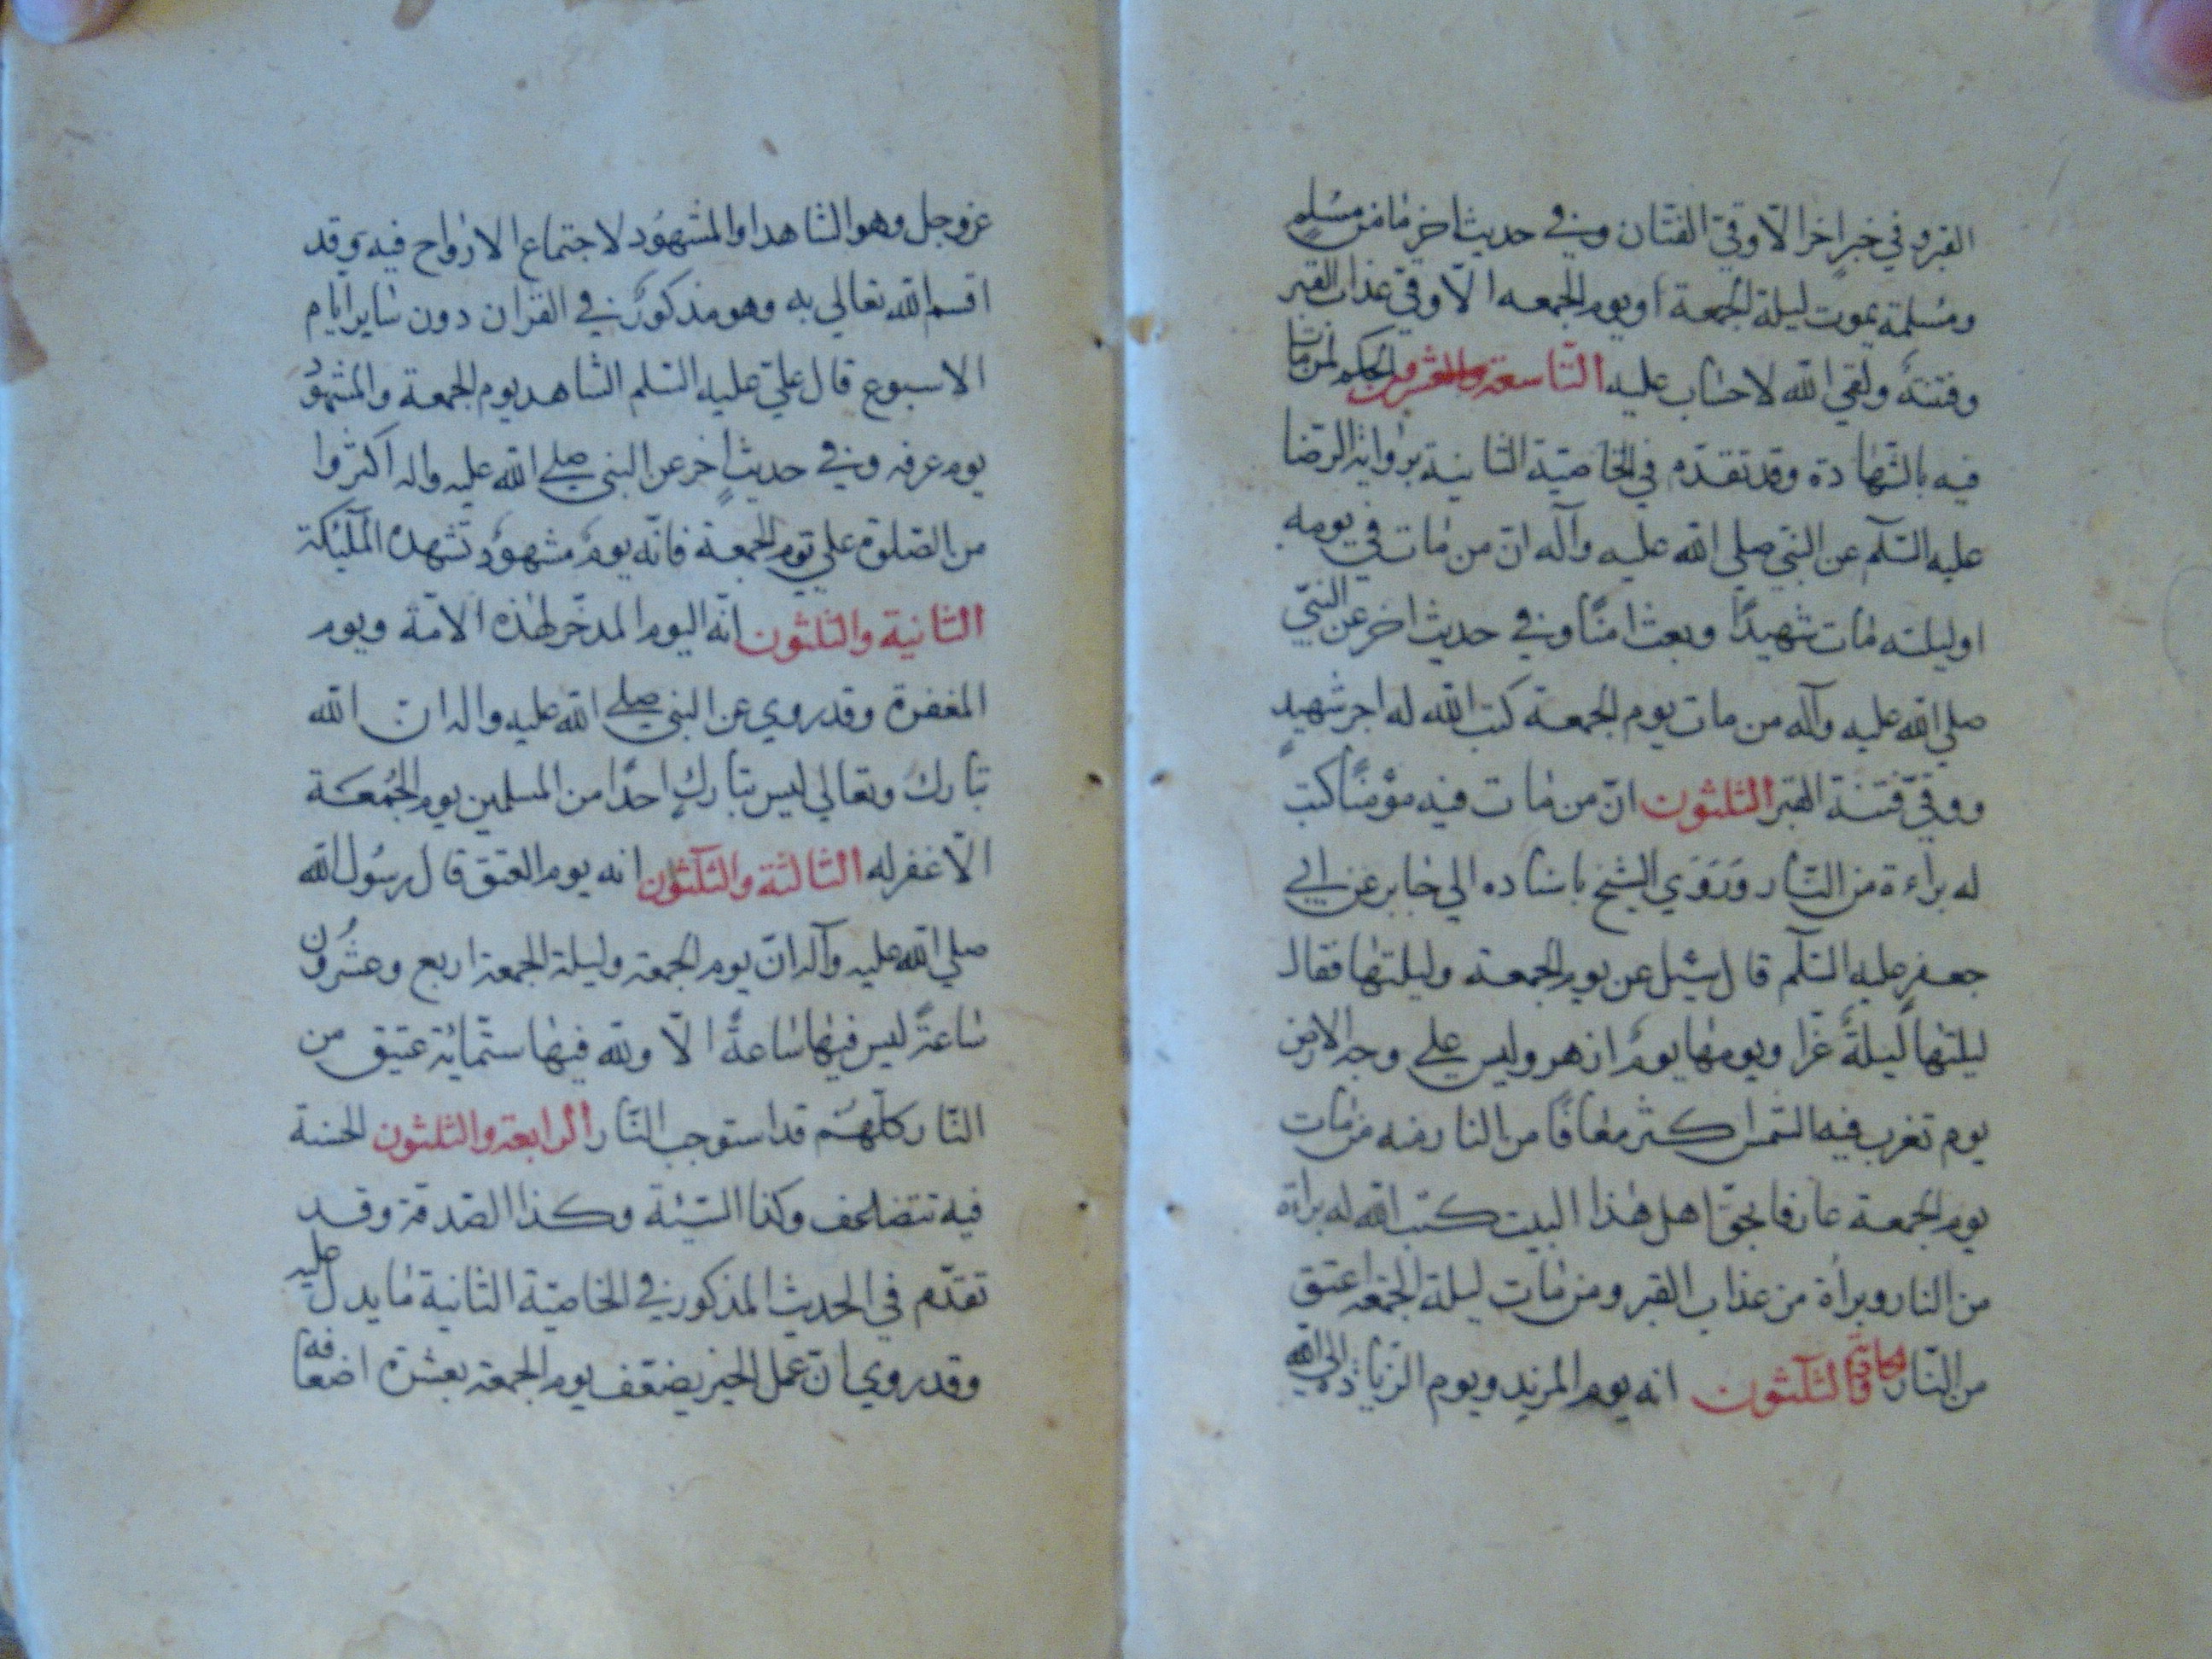 القبر و في خبرٍ اخر الّا وقي الفتّان وفي حديث اخر ما من مسْلمٍ
ومسْلمة يموت ليلة الجُمعة او يوم الجمعه الّا وقي عذاب القبر
وفتنتهُ ولقي الله لا حساب عليه التّاسعة والعشرون الحكم لمن مات
فيه بالشّهادة وقد تقدّم في الخاصّية الثانية برواية الرّضا
عليه السّلم عن النّبي صلي الله عليه وآله انّ من مات في يومه
او ليلته مات شهيدًا وبعث امنًا وفي حديث اخر عن النبّي
صلي الله عليه وآله من مات يوم الجمعة كتب الله له اجر شهيدٍ
ووقي فتنة القبر الثلثون انّ من مات فيه مؤمنًا كتب
له براءة من النّار وَرَوَي الشيخ باسناده الي جابر عن ابي
جعفر عليه السّلم قال سُئل عن يوم الجمعة وليلتها فقال
ليلتها ليلةٌ غرّا ويومها يومٌ ازهر وليس علي وجه الارض
يوم تغرب فيه الشمس اكثر معافًا من النار منه من مات
يوم الجمعة عارفا بحقّ اهل هٰذا البيت كتب الله له براءة
من النار وبراءة من عذاب القبر ومن مات ليلة الجمعه اعتق
من النّار الحادية والثلثون انه يوم المزيد ويوم الزّيادة الي الله
عز وجل وهو الشاهد او المشهوُد لاجتماع الارواح فيه وقد
اقسم الله تعالي به وهو مذكورٌ في القران دون ساير ايّام
الاسبوع قال عليّ عليه السّلم الشّاهد يوم الجمعة والمشهوُد
يوم عرفه وفي حديثٍ اخر عن النبي صلي الله عليه واله اكثروا
من الصّلوة علي يوم الجمعة فانّه يومٌ مشهودٌ تشهده الملئكة
الثانية والثلثون انّه اليوم المدخّر لهذه الامّة ويوم
المغفرة وقد روي عن النبي صلي الله عليه واله ان الله
تبارك وتعالي ليس بتاركٍ احدًا من المسلمين يوم الجُمعَة
الّا غفر له الثالثة والثّلثون انه يوم العتق قال رسُول الله
صلي الله عليه وآله انّ يوم الجمعة وليلة الجمعة اربع وعشُرون
ساعةً ليس فيها ساعةٌ الّا ولله فيها ستّمائة عتيق من
النّار كلّهُم قد استوجب النّار الرابعة والثلثون الحسنة
فيه تتضاعف وكذا السّيئة وكذا الصّدقة وقد
تقدّم في الحديث المذكور في الخاصّية الثانية ما يدل عليه
وقد روي انّ عمل الخير يضعّف يوم الجمعة بعشرة اضعافه